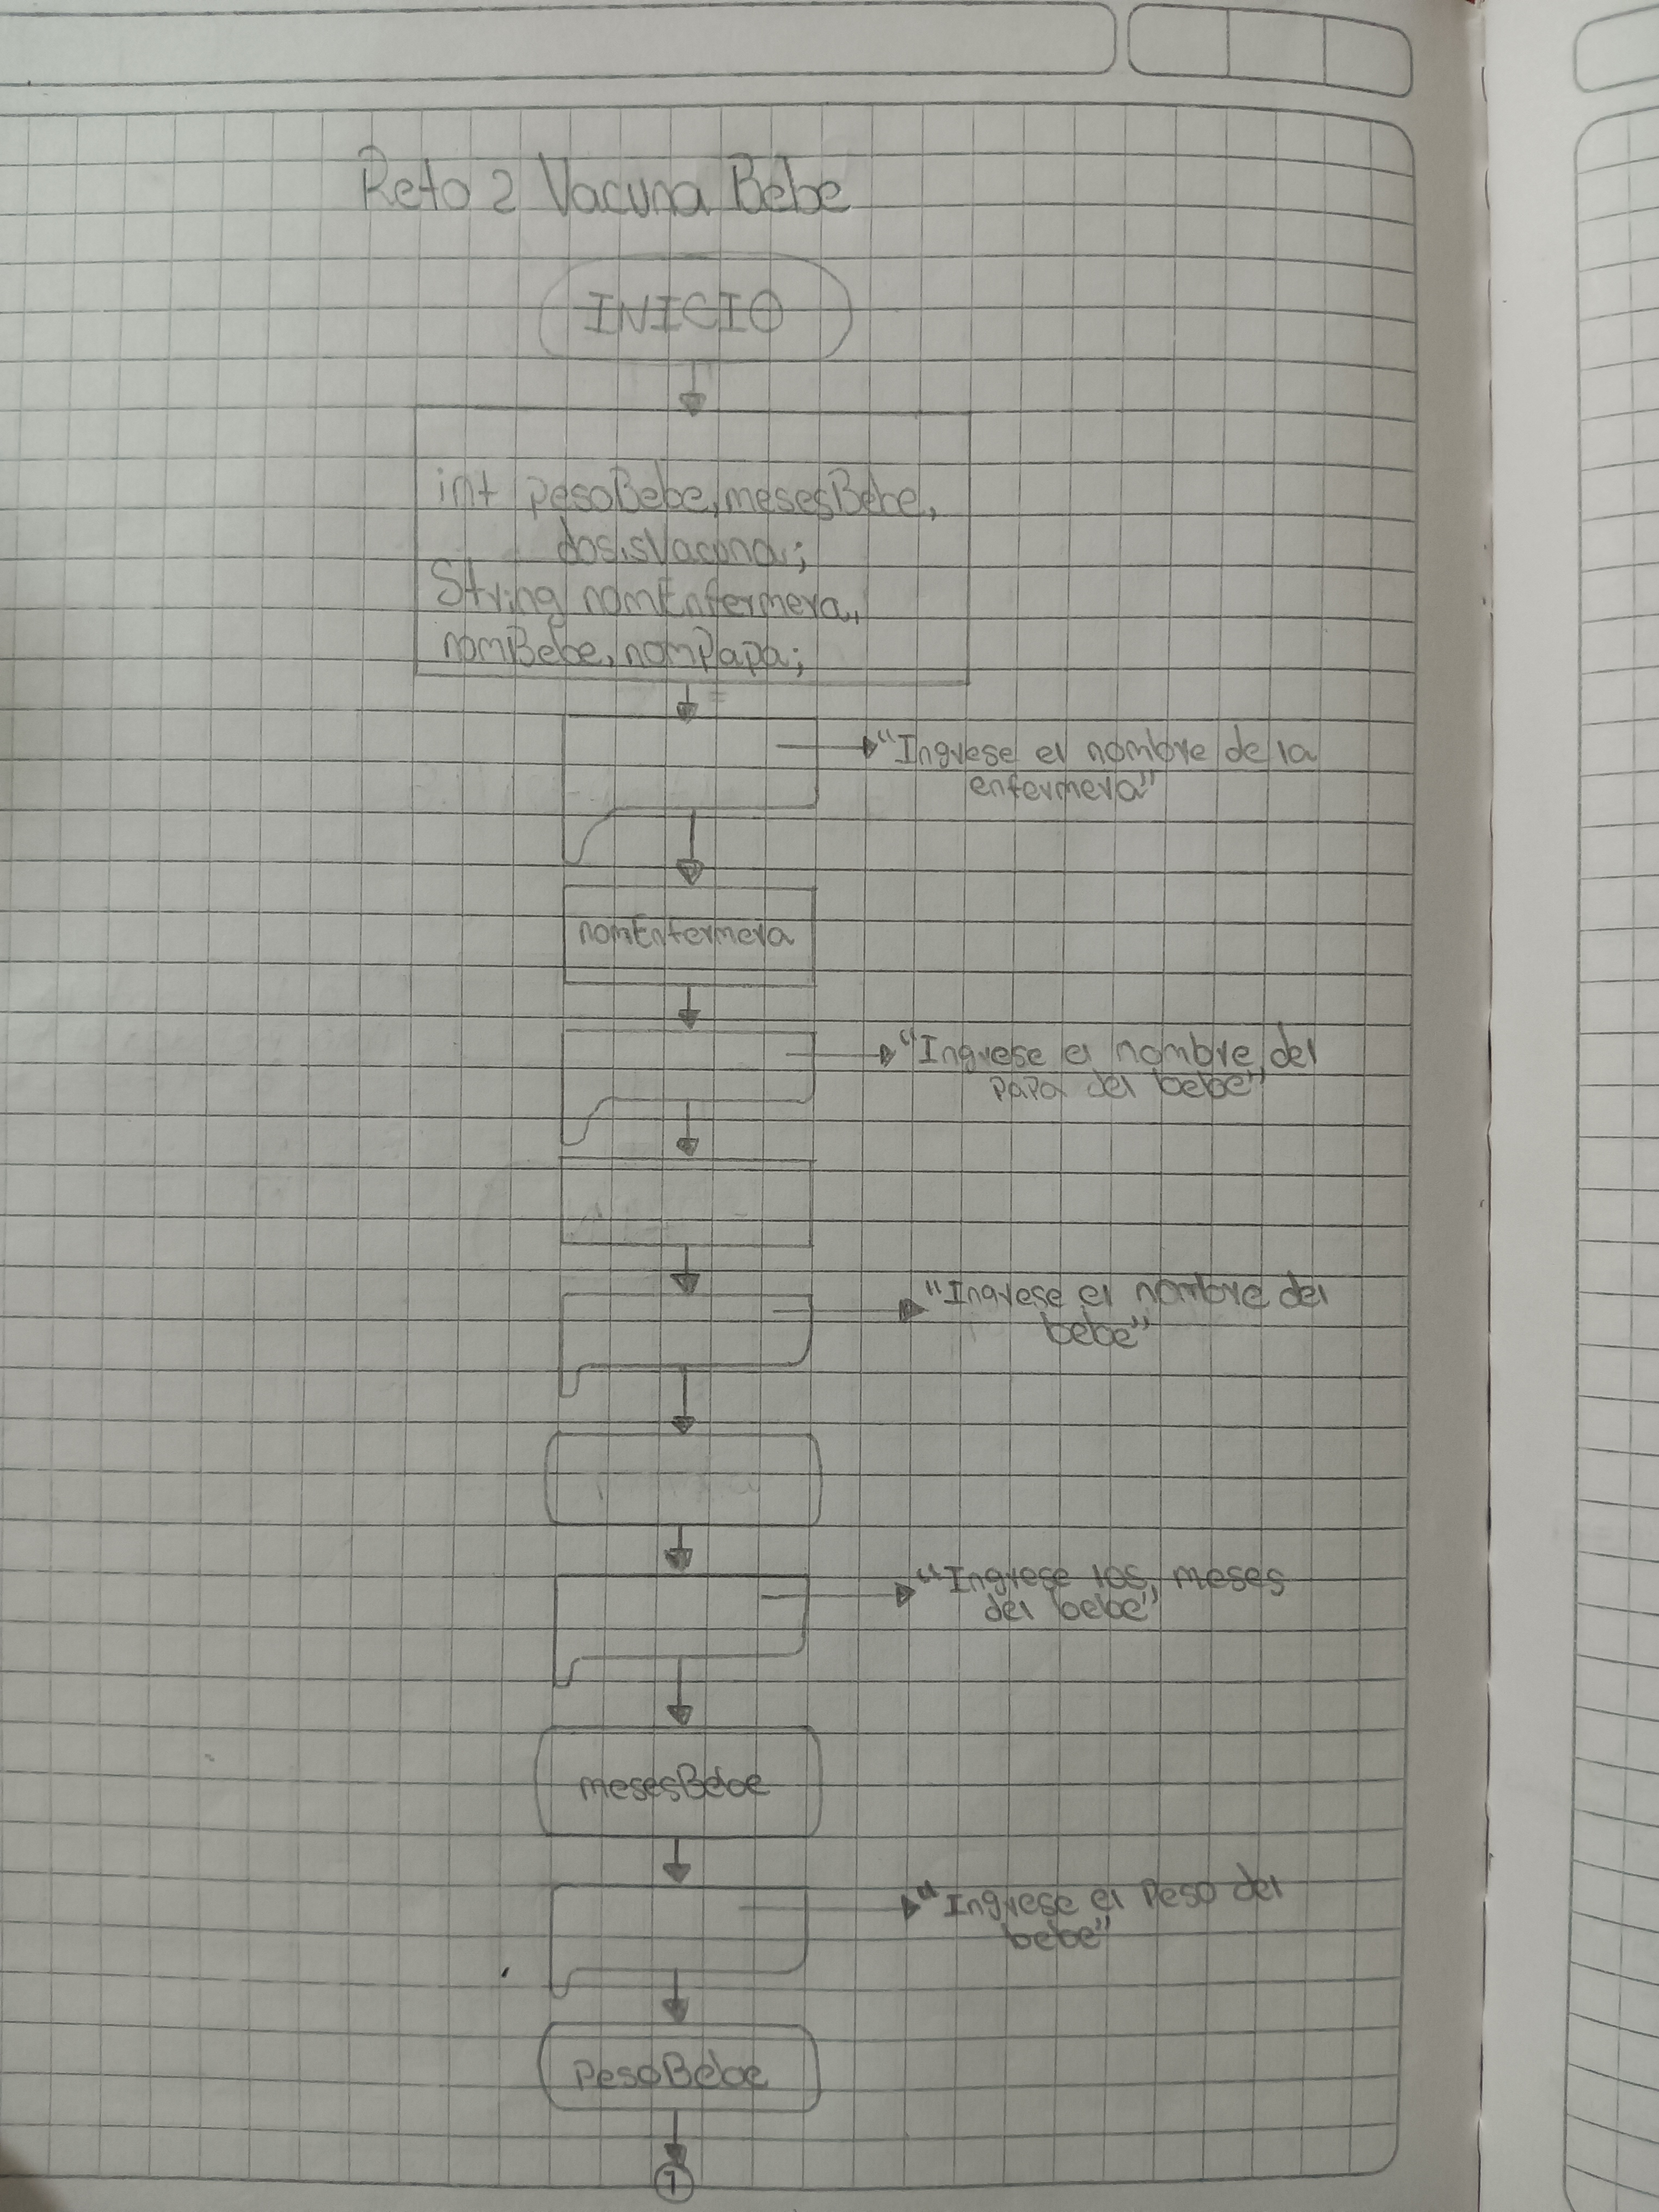 Reto 2 Vacuna Bebe
INICIO
int pesoBebe, mesesBebe,
dosisVacuna;
String nomEnfermera,
nomBebe, nomPapa;
"Ingrese el nombre de la
enfermera"
nomEnfermera
"Ingrese el nombre del
papa del bebe"
"Ingrese el nombre del
bebe"
"Ingrese los meses
del bebe"
mesesBebe
"Ingrese el Peso del
bebe"
PesoBebe
1